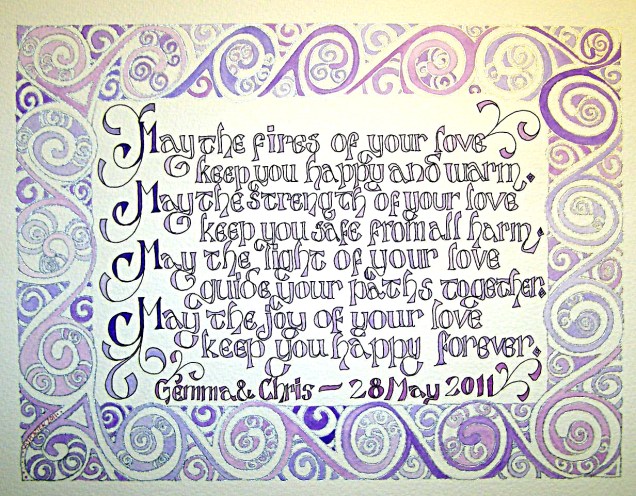 May the fires of your love
keep you happy and warm.
May the strength of your love
keep you safe from all harm,
May the light of your love
guide your paths together.
May the joy of your love
keep you happy forever.
Gemma & Chris – 28 May 2011